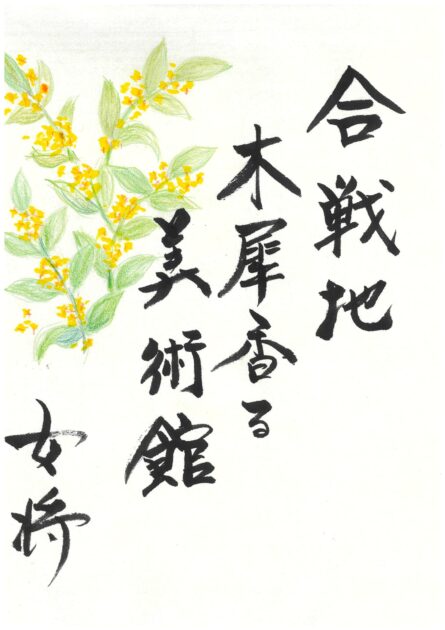 合戦地
木犀香る
美術館
女将